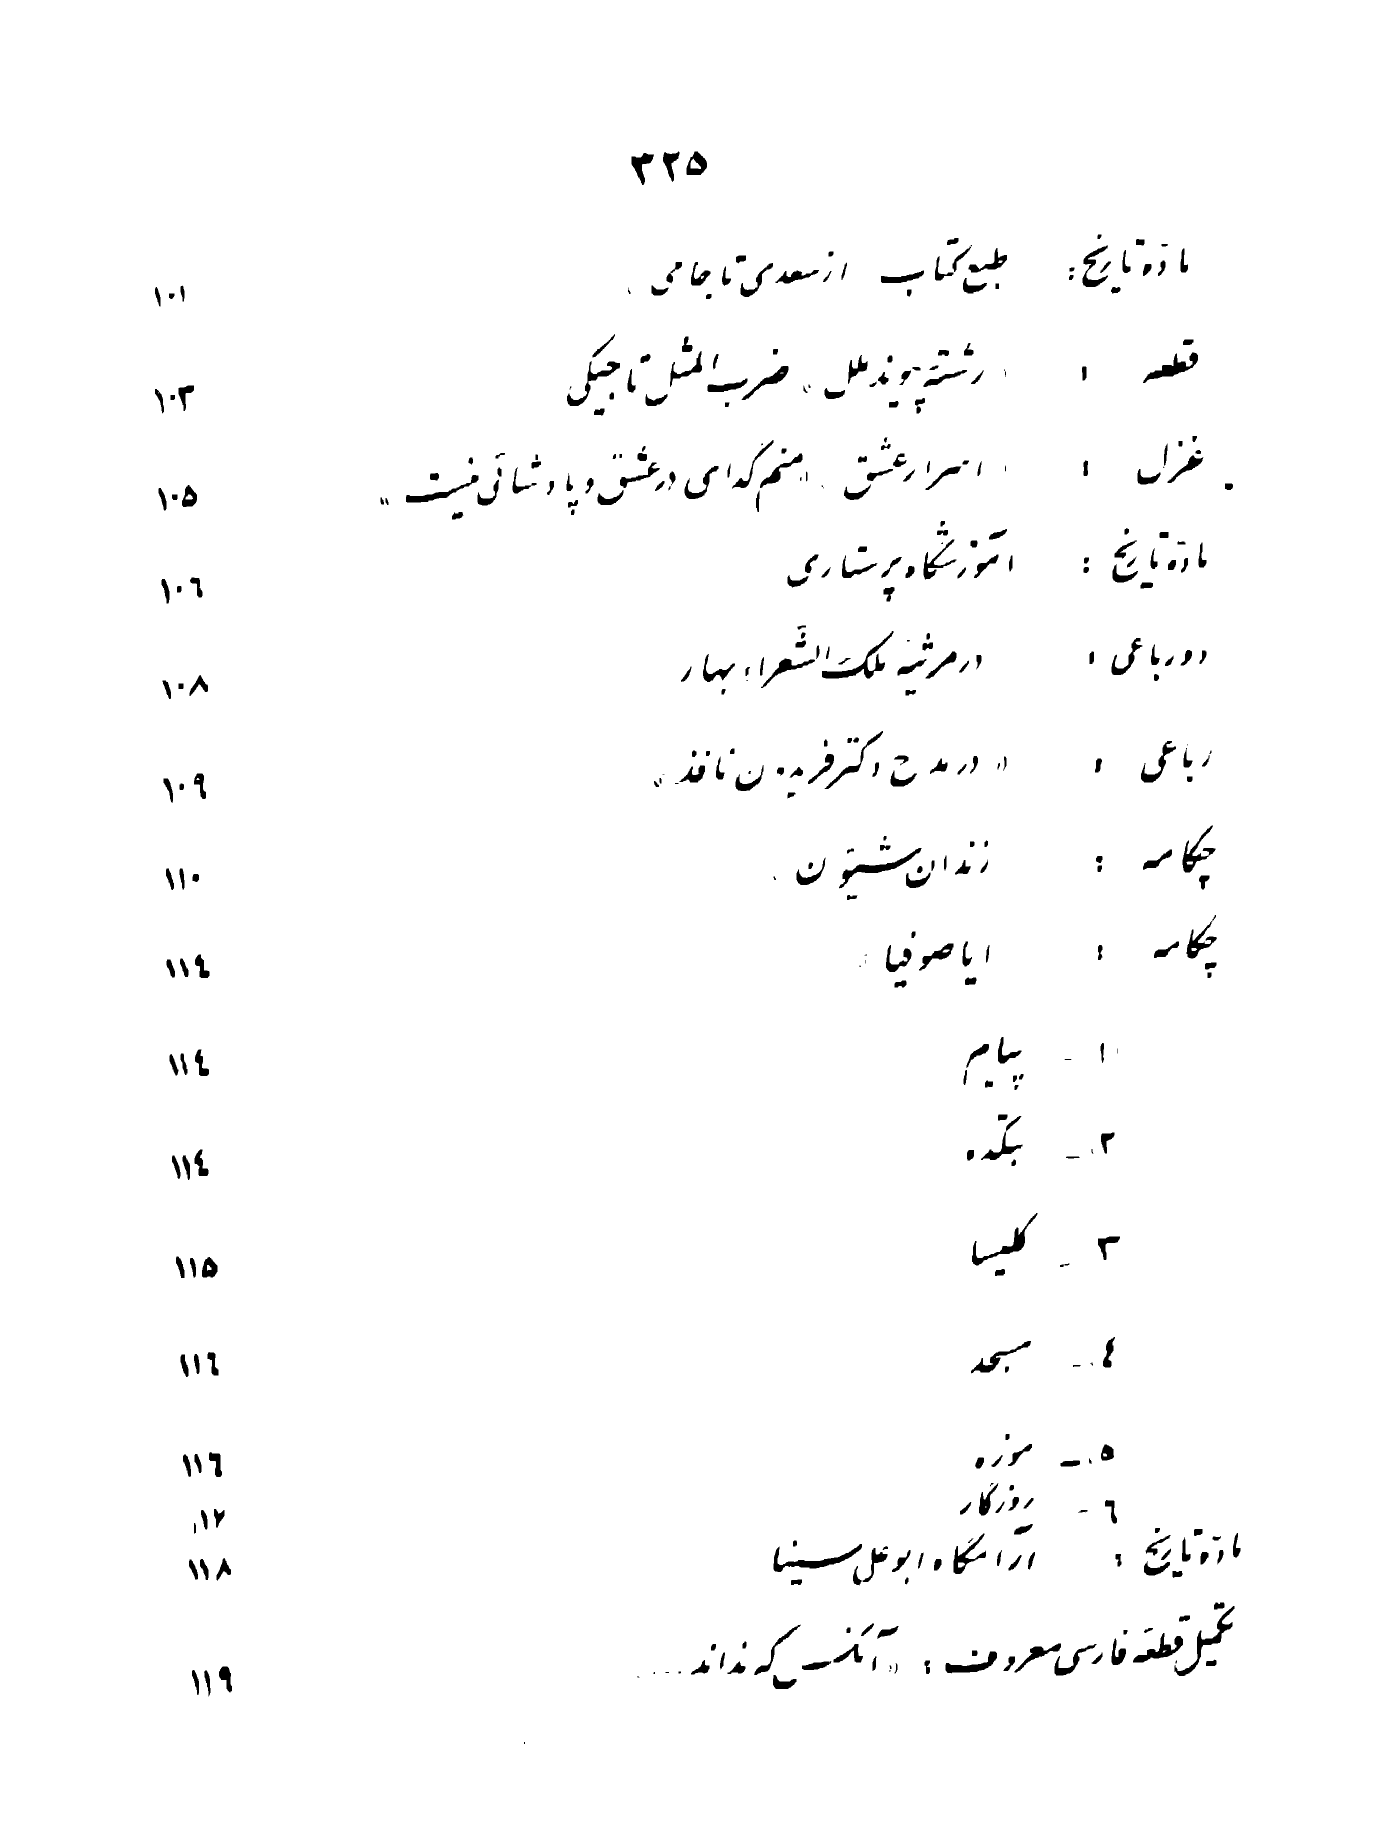 ۳۲۵
مادّه تاریخ : طبع کتاب از سعدی تا جامی ۱۰۱
قطعه : رشتهٔ پیوند ملل » ضرب المثل تاجیکی ۱۰۳
غزل : اسرار عشق « منم گدای در عشق و پادشائی نیست » ۱۰۵
مادّه تاریخ : آموزشگاه پرستاری ۱۰۶
دو رباعی : در مرثیهٔ ملک الشّعراء بهار ۱۰۸
رباعی : « در مدح دکتر فریدون نافذ » ۱۰۹
چکامه : زندان شیّون ۱۱۰
چکامه : ایاصوفیا ۱۱٤
۱ - پیام ۱۱٤
۲ - بتکده ۱۱٤
۳ - کلیسا ۱۱۵
٤ - مسجد ۱۱٦
۵ - موزه ۱۱٦
٦ - روزگار ۱۱۷
مادّه تاریخ : آرامگاه ابوعلی سینا ۱۱۸
تکمیل قطعه فارسی معروف : « آنکس که نداند .... ۱۱۹